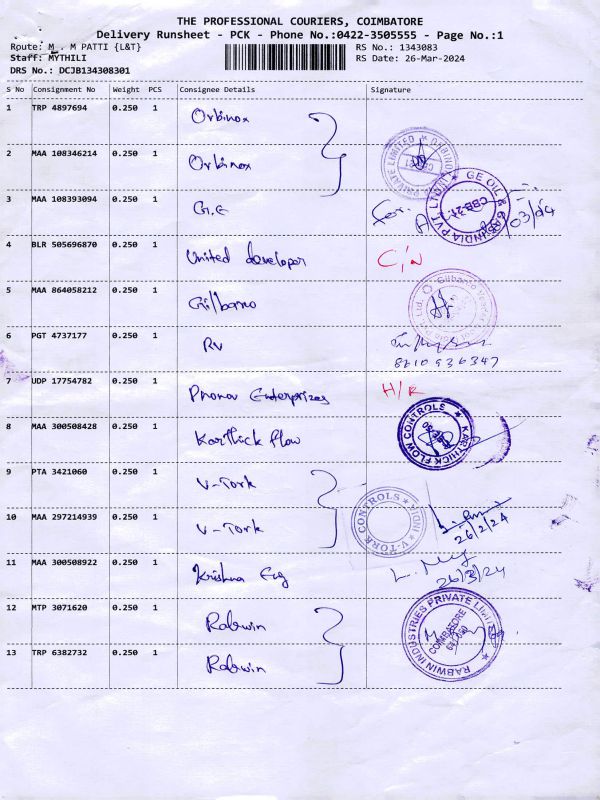 THE PROFESSIONAL COURIERS, COIMBATORE
Delivery Runsheet - PCK - Phone No.:0422-3505555 - Page No.:1
Route: M . M PATTI {L&T} RS No.: 1343083
Staff: MYTHILI RS Date: 26-Mar-2024
DRS No.: DCJB134308301
S No Consignment No Weight PCS Consignee Details Signature
1 TRP 4897694 0.250 1 Orbinox
2 MAA 108346214 0.250 1 Orbinox
PRIVATE LIMITED ORBINOX
3 MAA 108393094 0.250 1 G.E For.
GE OIL & GAS INDIA PVT LTD
4 BLR 505696870 0.250 1 United developer C/N
5 MAA 864058212 0.250 1 Gilbarco
Gilbarco Veeder
6 PGT 4737177 0.250 1 RV
8210936347
7 UDP 17754782 0.250 1 Pronov Enterprizes H/R
8 MAA 300508428 0.250 1 Karthick flow
KARTHICK FLOW CONTROLS
9 PTA 3421060 0.250 1 V-Tork
10 MAA 297214939 0.250 1 V-Tork
V-TORK CONTROLS INDIA
26/2/24
11 MAA 300508922 0.250 1 Krishna Eng
26/3/24
12 MTP 3071620 0.250 1 Rabwin
13 TRP 6382732 0.250 1 Rabwin
RABWIN INDUSTRIES PRIVATE LIMITED
COIMBATORE